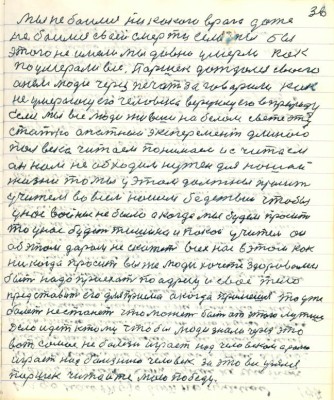 36
Мы не боимся никакого врага даже
не боимся своей смерти если мы бы
этого не имели мы давно умерли как
поумерали все. Паршек дождался своего
люди через печать заговорили как
не умерающего человека верующего в природу
Если мы все люди живши на белом свете эту
статью опытный эксперемент длиного
пол века читаем понимаем и считаем
он нам не обходим нужен для нашой
жизни то мы у этом должны просить
учителя во всем нашем бедствию чтобы
у нас войны не было а когда мы будем просить
то у нас будет тишина и покой учитель он
об этом даром не скажет всех нас в этом как
никогда просит вы же люди хочете здоровыми
быть надо приехать по адресу и своё тело
представить его для приема а когда примешся то уже
болеть не станеш что может быть от этого лутше
Дело идет к тому чтобы люди знали про это
вот самое не болезь играет над человеком а
играет над болезнию человек за это вы
паршек читайте мою победу.